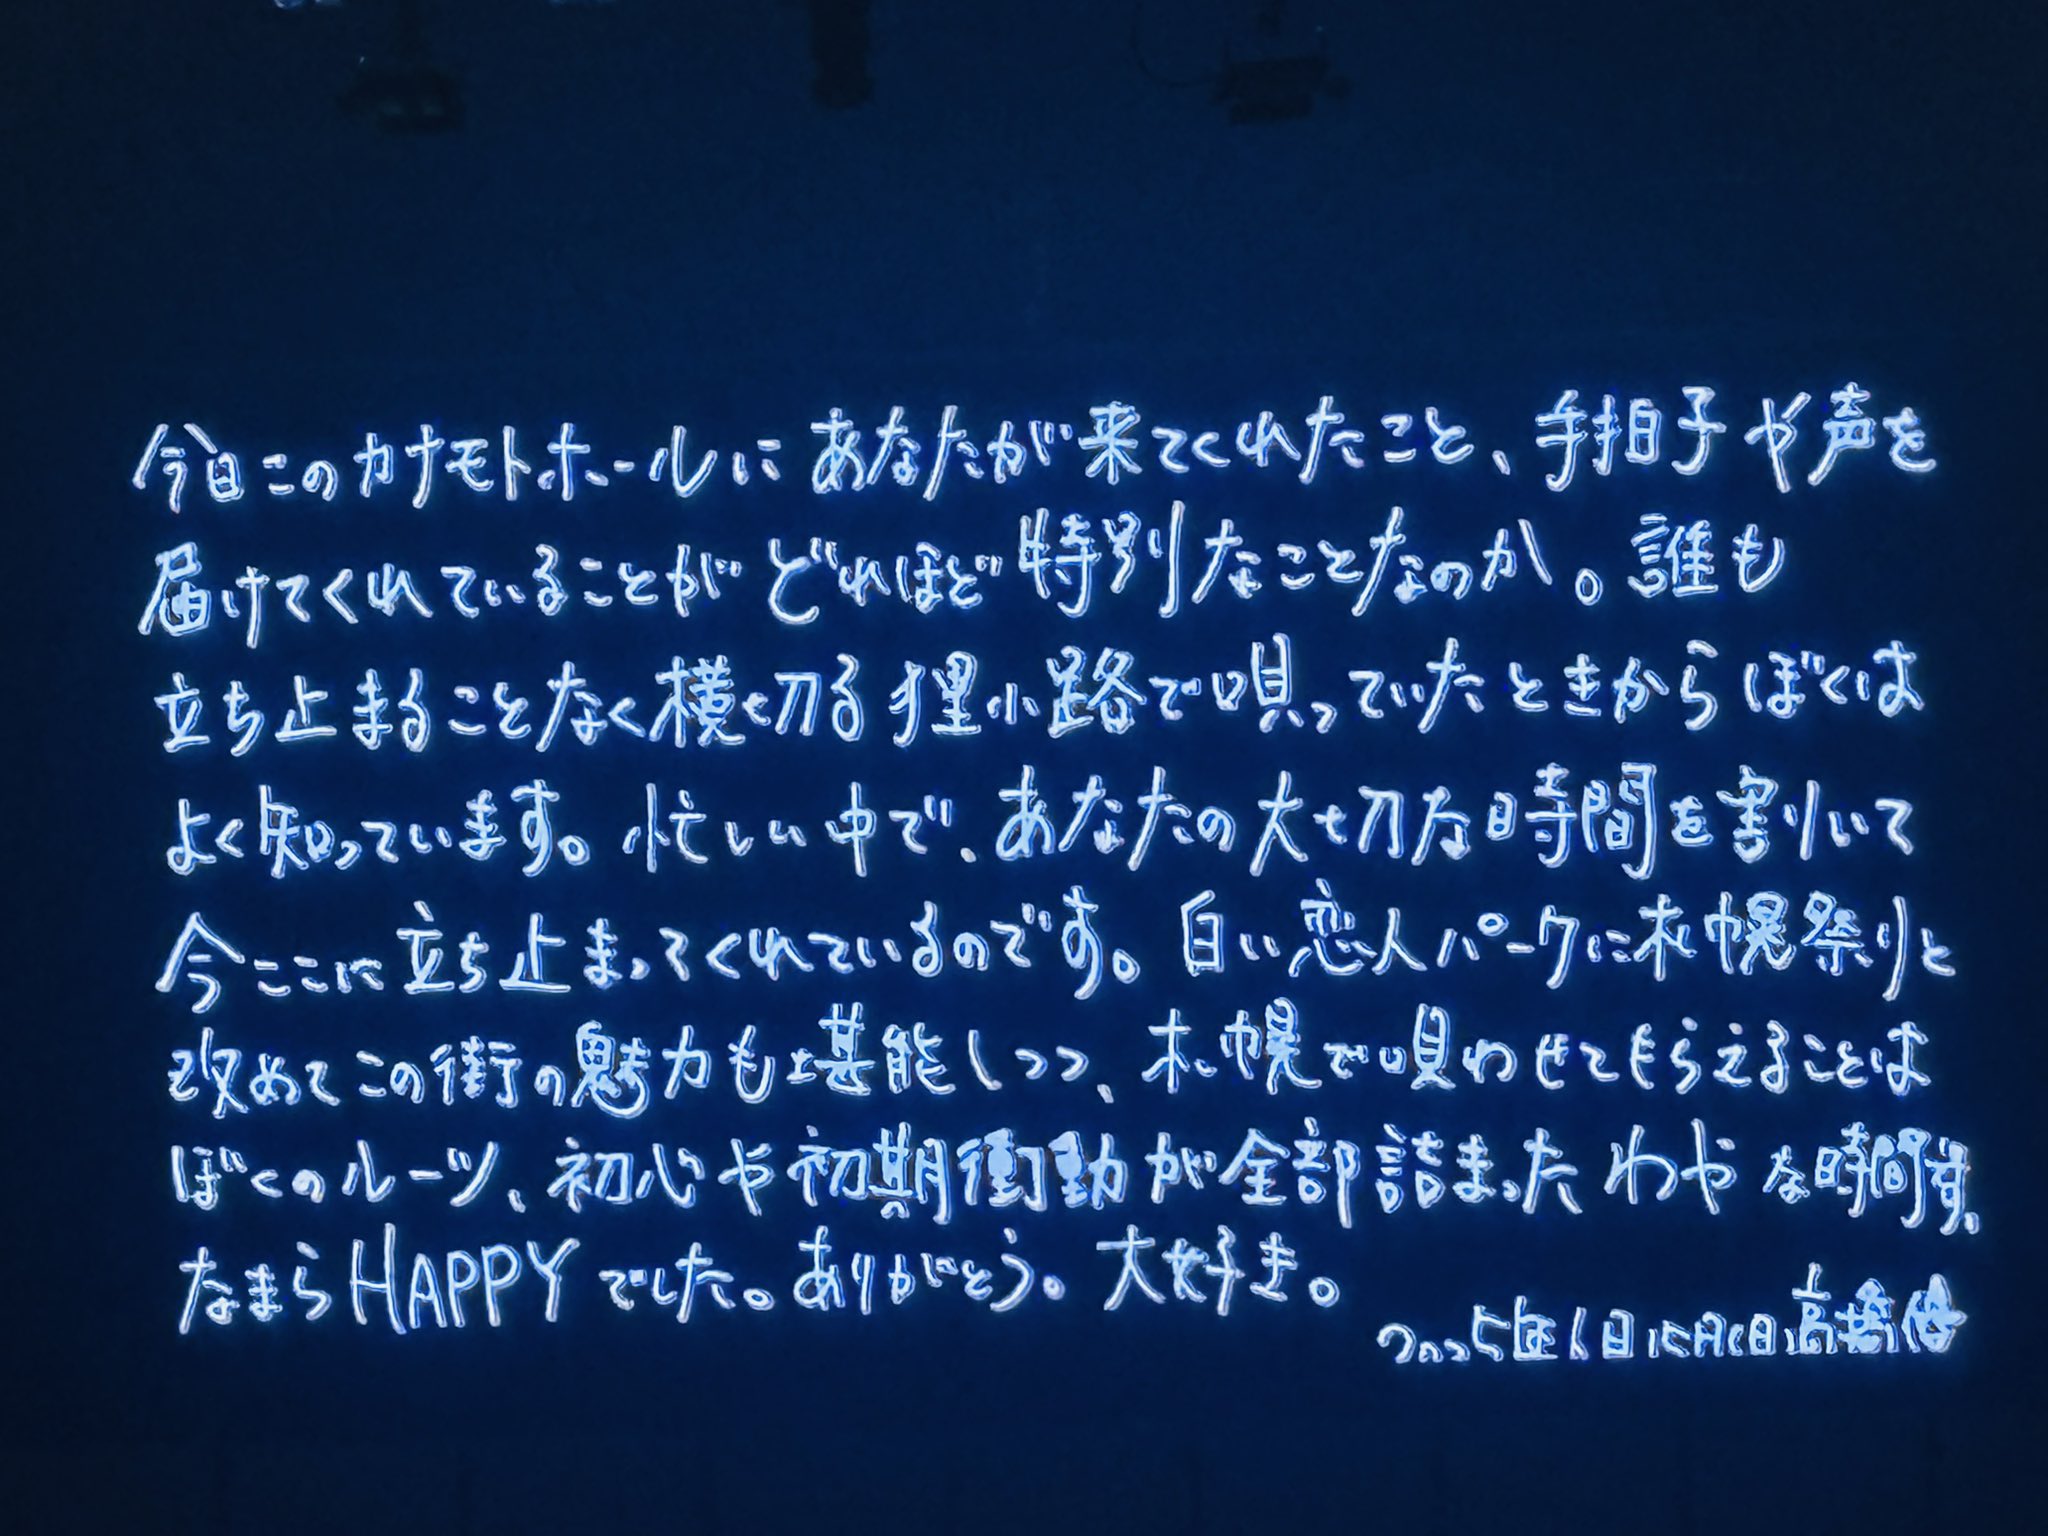 今日このカナモトホールにあなたが来てくれたこと、手拍子や声を
届けてくれていることがどれほど特別なことなのか。誰も
立ち止まることなく横切る狸小路で唄っていたときからぼくは
よく知っています。忙しい中で、あなたの大切な時間を割いて
今ここに立ち止まってくれているのです。白い恋人パークに札幌祭りと
改めてこの街の魅力も堪能しつつ、札幌で唄わせてもらえることは
ぼくのルーツ、初心や初期衝動が全部詰まったわやな時間です。
なまらHAPPYでした。ありがとう。大好き。
2025年 高橋優